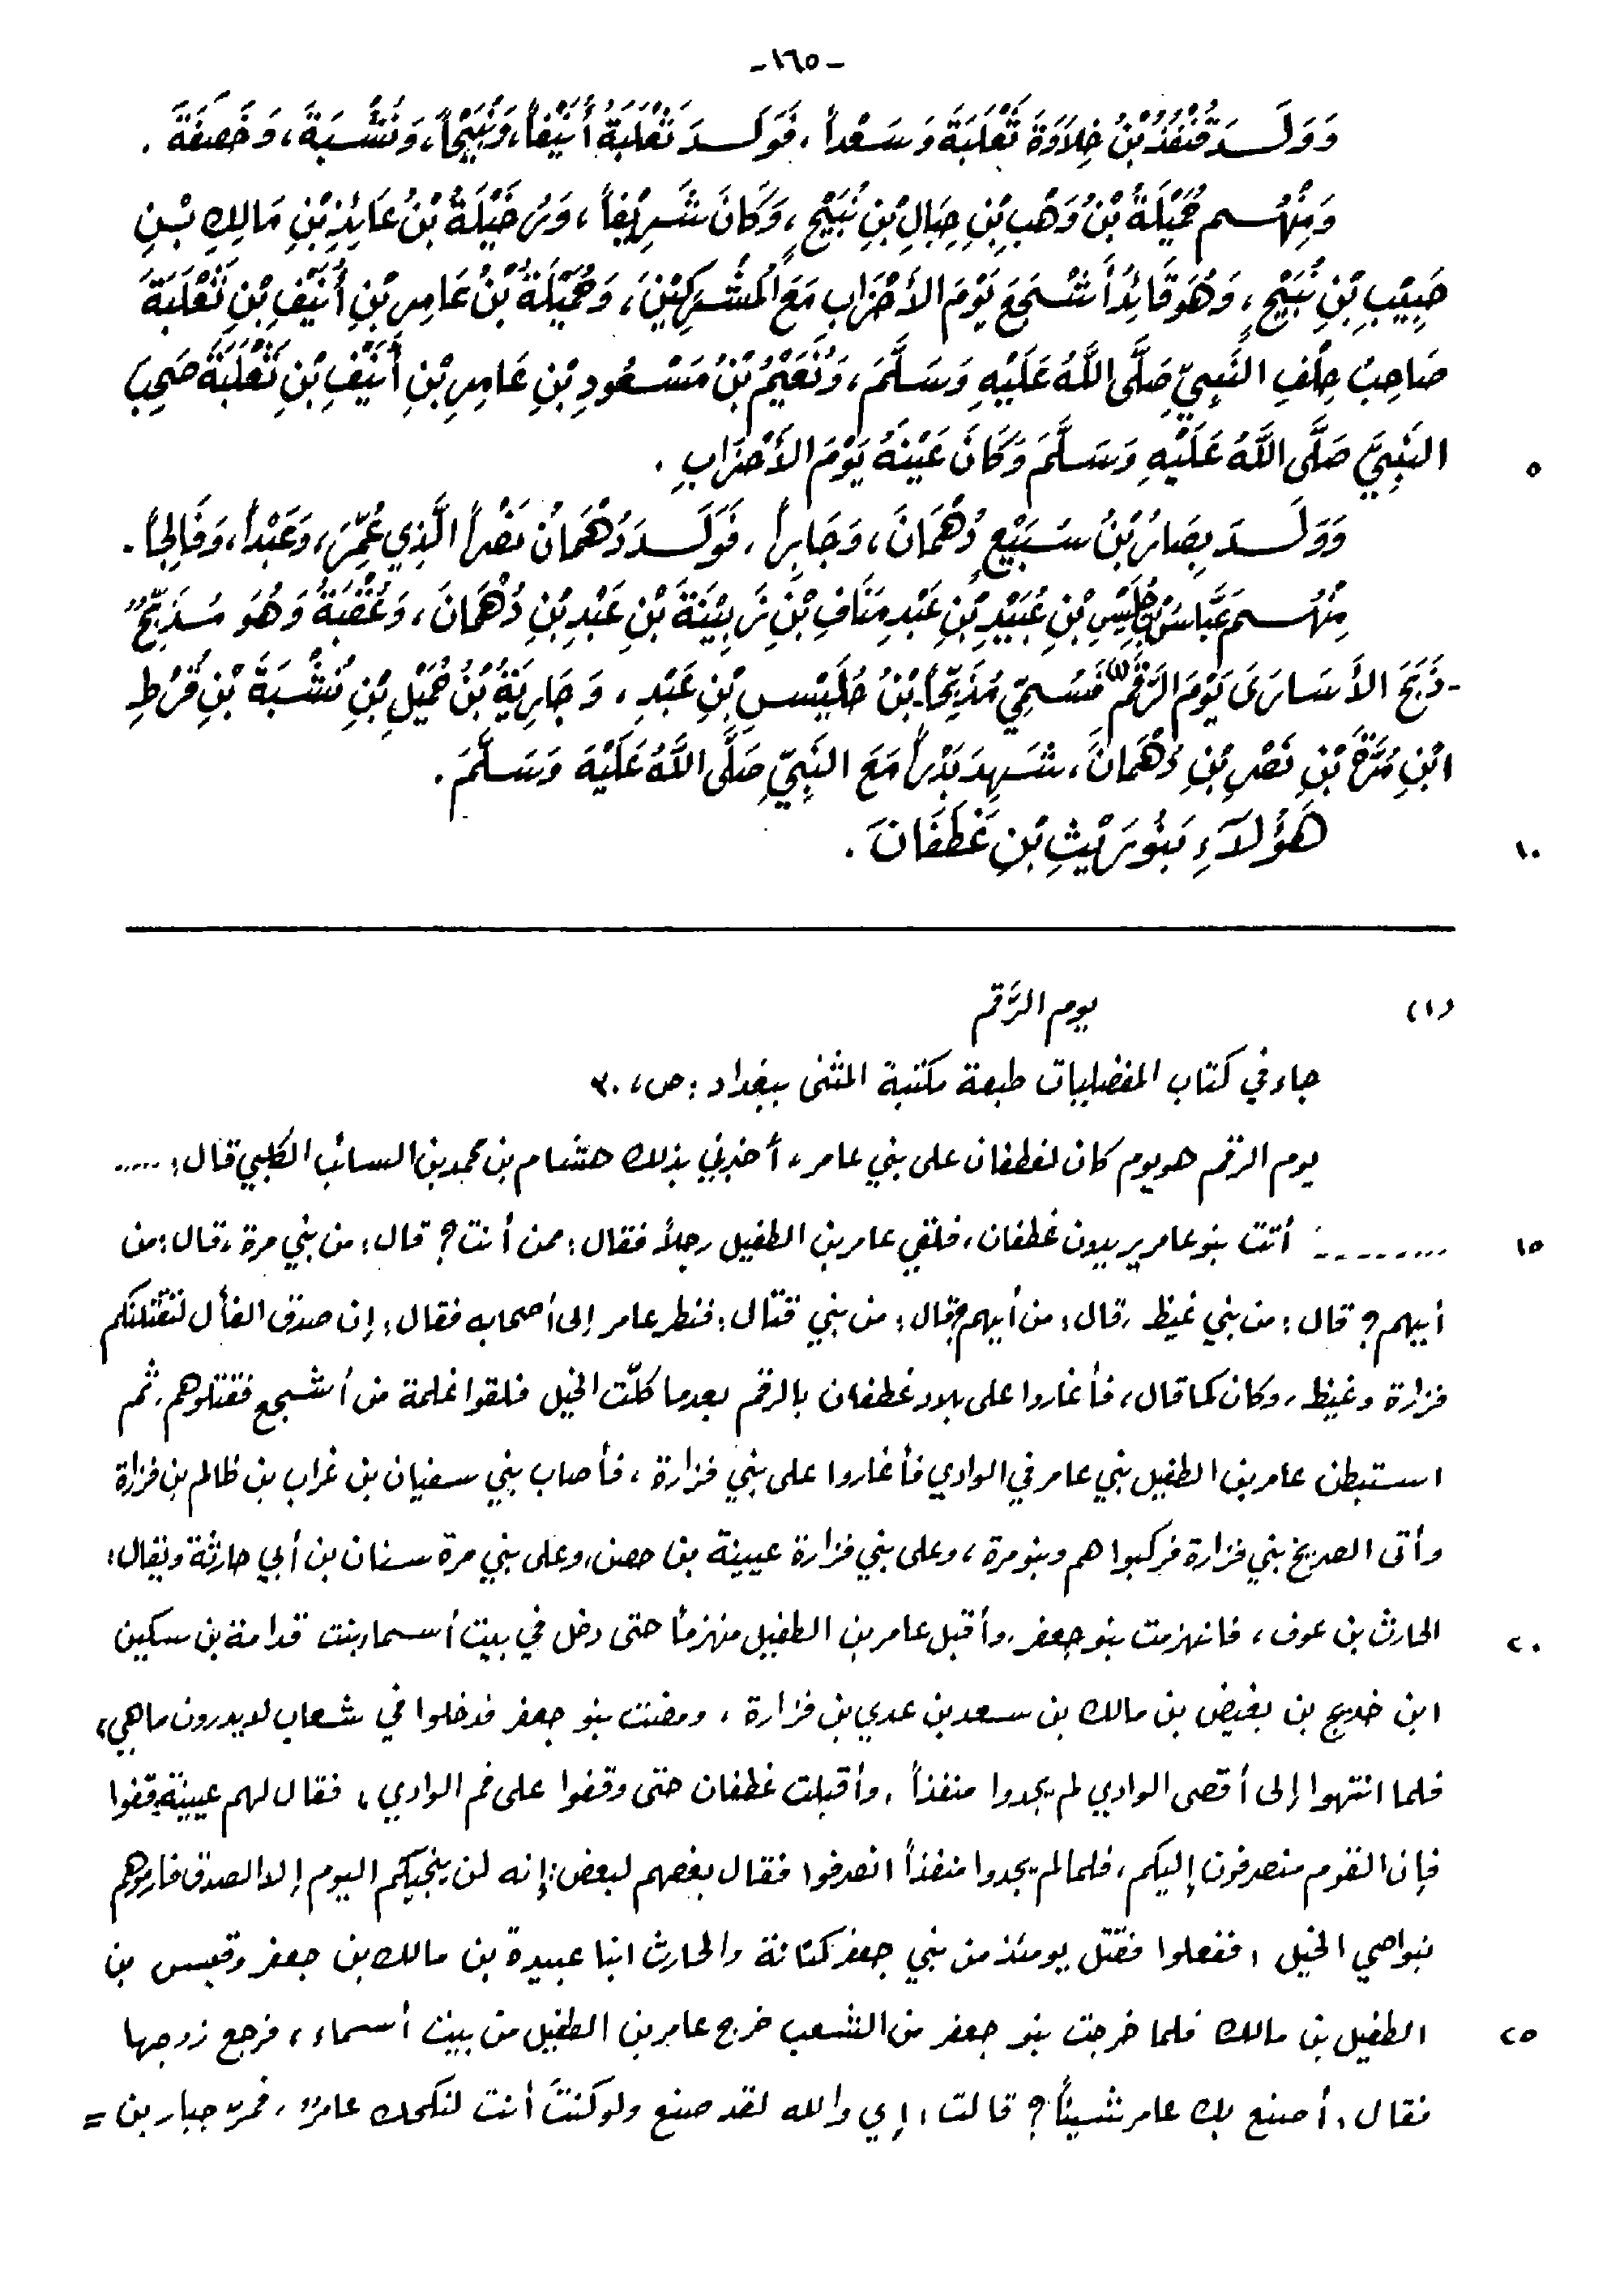 -١٦٥-
وَوَلَـدَ قُنْفُذُ بْنُ خِلَاوَةَ ثَعْلَبَةَ وَسَعْداً، فَوَلَـدَ ثَعْلَبَةُ أُنَيْفاً، وَنُبَيْحاً، وَنُشْبَةَ، وَخَصَفَةَ .
وَمِنْهُـم حُمَيْلَةُ بْنُ وَهْبِ بْنِ حِبَالِ بْنِ نُبَيْحٍ، وَكَانَ شَرِيْفاً، وَرُخَيْلَةُ بْنُ عَائِذِ بْنِ مَالِكِ بْنِ
حَبِيْبِ بْنِ نُبَيْحٍ، وَهُوَ قَائِدُ أَشْجَعَ يَوْمَ الأَحْزَابِ مَعَ الْمُشْرِكِيْنَ، وَحُمَيْلَةُ بْنُ عَامِرِ بْنِ أُنَيْفِ بْنِ ثَعْلَبَةَ
صَاحِبُ حِلْفِ النَّبِيِّ صَلَّى اللَّهُ عَلَيْهِ وَسَلَّمَ، وَنُعَيْمُ بْنُ مَسْعُودِ بْنِ عَامِرِ بْنِ أُنَيْفِ بْنِ ثَعْلَبَةَ صَحِبَ
النَّبِيَّ صَلَّى اللَّهُ عَلَيْهِ وَسَلَّمَ وَكَانَ عَيْنَهُ يَوْمَ الأَحْزَابِ .
٥
وَوَلَـدَ بِصَارُ بْنُ سُبَيْعٍ دُهْمَانَ، وَجَابِراً، فَوَلَـدَ دُهْمَانُ نَصْراً الَّذِي عُمِّرَ، وَعَبْداً، وَفَالِجاً.
مِنْهُـم عَبَّاسُ بْنُ حُلَيْسِ بْنِ عُبَيْدِ بْنِ عَبْدِ مَنَافِ بْنِ زَبِيْنَةَ بْنِ عَبْدِ بْنِ دُهْمَانَ، وَعُقْبَةُ وَهُوَ مُذَبِّحٌ
-ذَبَحَ الأَسَارَى يَوْمَ الرَّقَمِ (١) فَسُمِّيَ مُذَبِّحاً- بْنُ حُلَيْسِ بْنِ عَبْدِ، وَجَارِيَةُ بْنُ حُمَيْلِ بْنِ نُشْبَةَ بْنِ قُرْطِ
ابْنِ مُرَّةَ بْنِ نَصْرِ بْنِ دُهْمَانَ، شَهِدَ بَدْراً مَعَ النَّبِيِّ صَلَّى اللَّهُ عَلَيْهِ وَسَلَّمَ.
هَؤُلَاءِ بَنُو رَيْثِ بْنِ غَطَفَانَ.
١٠
(١) يوم الرَّقم
جاء في كتاب المفضليات طبعة مكتبة المثنى ببغداد : ص، ٣٠
يوم الرقم هو يوم كان لغطفان على بني عامر، أخبرني بذلك هشام بن محمد بن السائب الكلبي قال: .....
......... أتت بنو عامر يريدون غطفان، فلقي عامر بن الطفيل رجلاً فقال: ممن أنت؟ قال: من بني مرة، قال: من
١٥
أيهم؟ قال: من بني غيظ، قال: من أيهم؟ قال: من بني قتال: فنظر عامر إلى أصحابه فقال: إن صدق الفأل لتقتلنكم
فزارة وغيظ، وكان كما قال، فأغاروا على بلاد غطفان بالرقم بعدما كلّت الخيل فلقوا غلمة من أشجع فقتلوهم، ثم
استبطن عامر بن الطفيل بني عامر في الوادي فأغاروا على بني فزارة، فأصاب بني سفيان بن غراب بن ظالم بن فزارة
وأتى الصريخ بني فزارة فركبوا هم وبنو مرة، وعلى بني فزارة عيينة بن حصن، وعلى بني مرة سنان بن أبي حارثة ويقال:
الحارث بن عوف، فانهزمت بنو جعفر، وأقبل عامر بن الطفيل منهزماً حتى دخل في بيت أسماء بنت قدامة بن سكين
٢٠
ابن خديج بن بغيض بن مالك بن سعد بن عدي بن فزارة، ومضت بنو جعفر فدخلوا في شعاب لا يدرون ما هي،
فلما انتهوا إلى أقصى الوادي لم يجدوا منفذاً، وأقبلت غطفان حتى وقفوا على فم الوادي، فقال لهم عيينة: قفوا
فإن القوم منصرفون إليكم، فلما لم يجدوا منفذاً انصرفوا فقال بعضهم لبعض: إنه لن ينجيكم اليوم إلا الصدق فارموهم
بنواصي الخيل، ففعلوا فقتل يومئذ من بني جعفر كنانة والحارث ابنا عبيدة بن مالك بن جعفر وقيس بن
الطفيل بن مالك فلما خرجت بنو جعفر من الشعب خرج عامر بن الطفيل من بيت أسماء، فرجع زوجها
٢٥
فقال، أصنع بك عامر شيئاً؟ قالت: إي والله لقد صنع ولو كنتَ أنت لنكحك عامرٌ، فمرّ جبار بن =